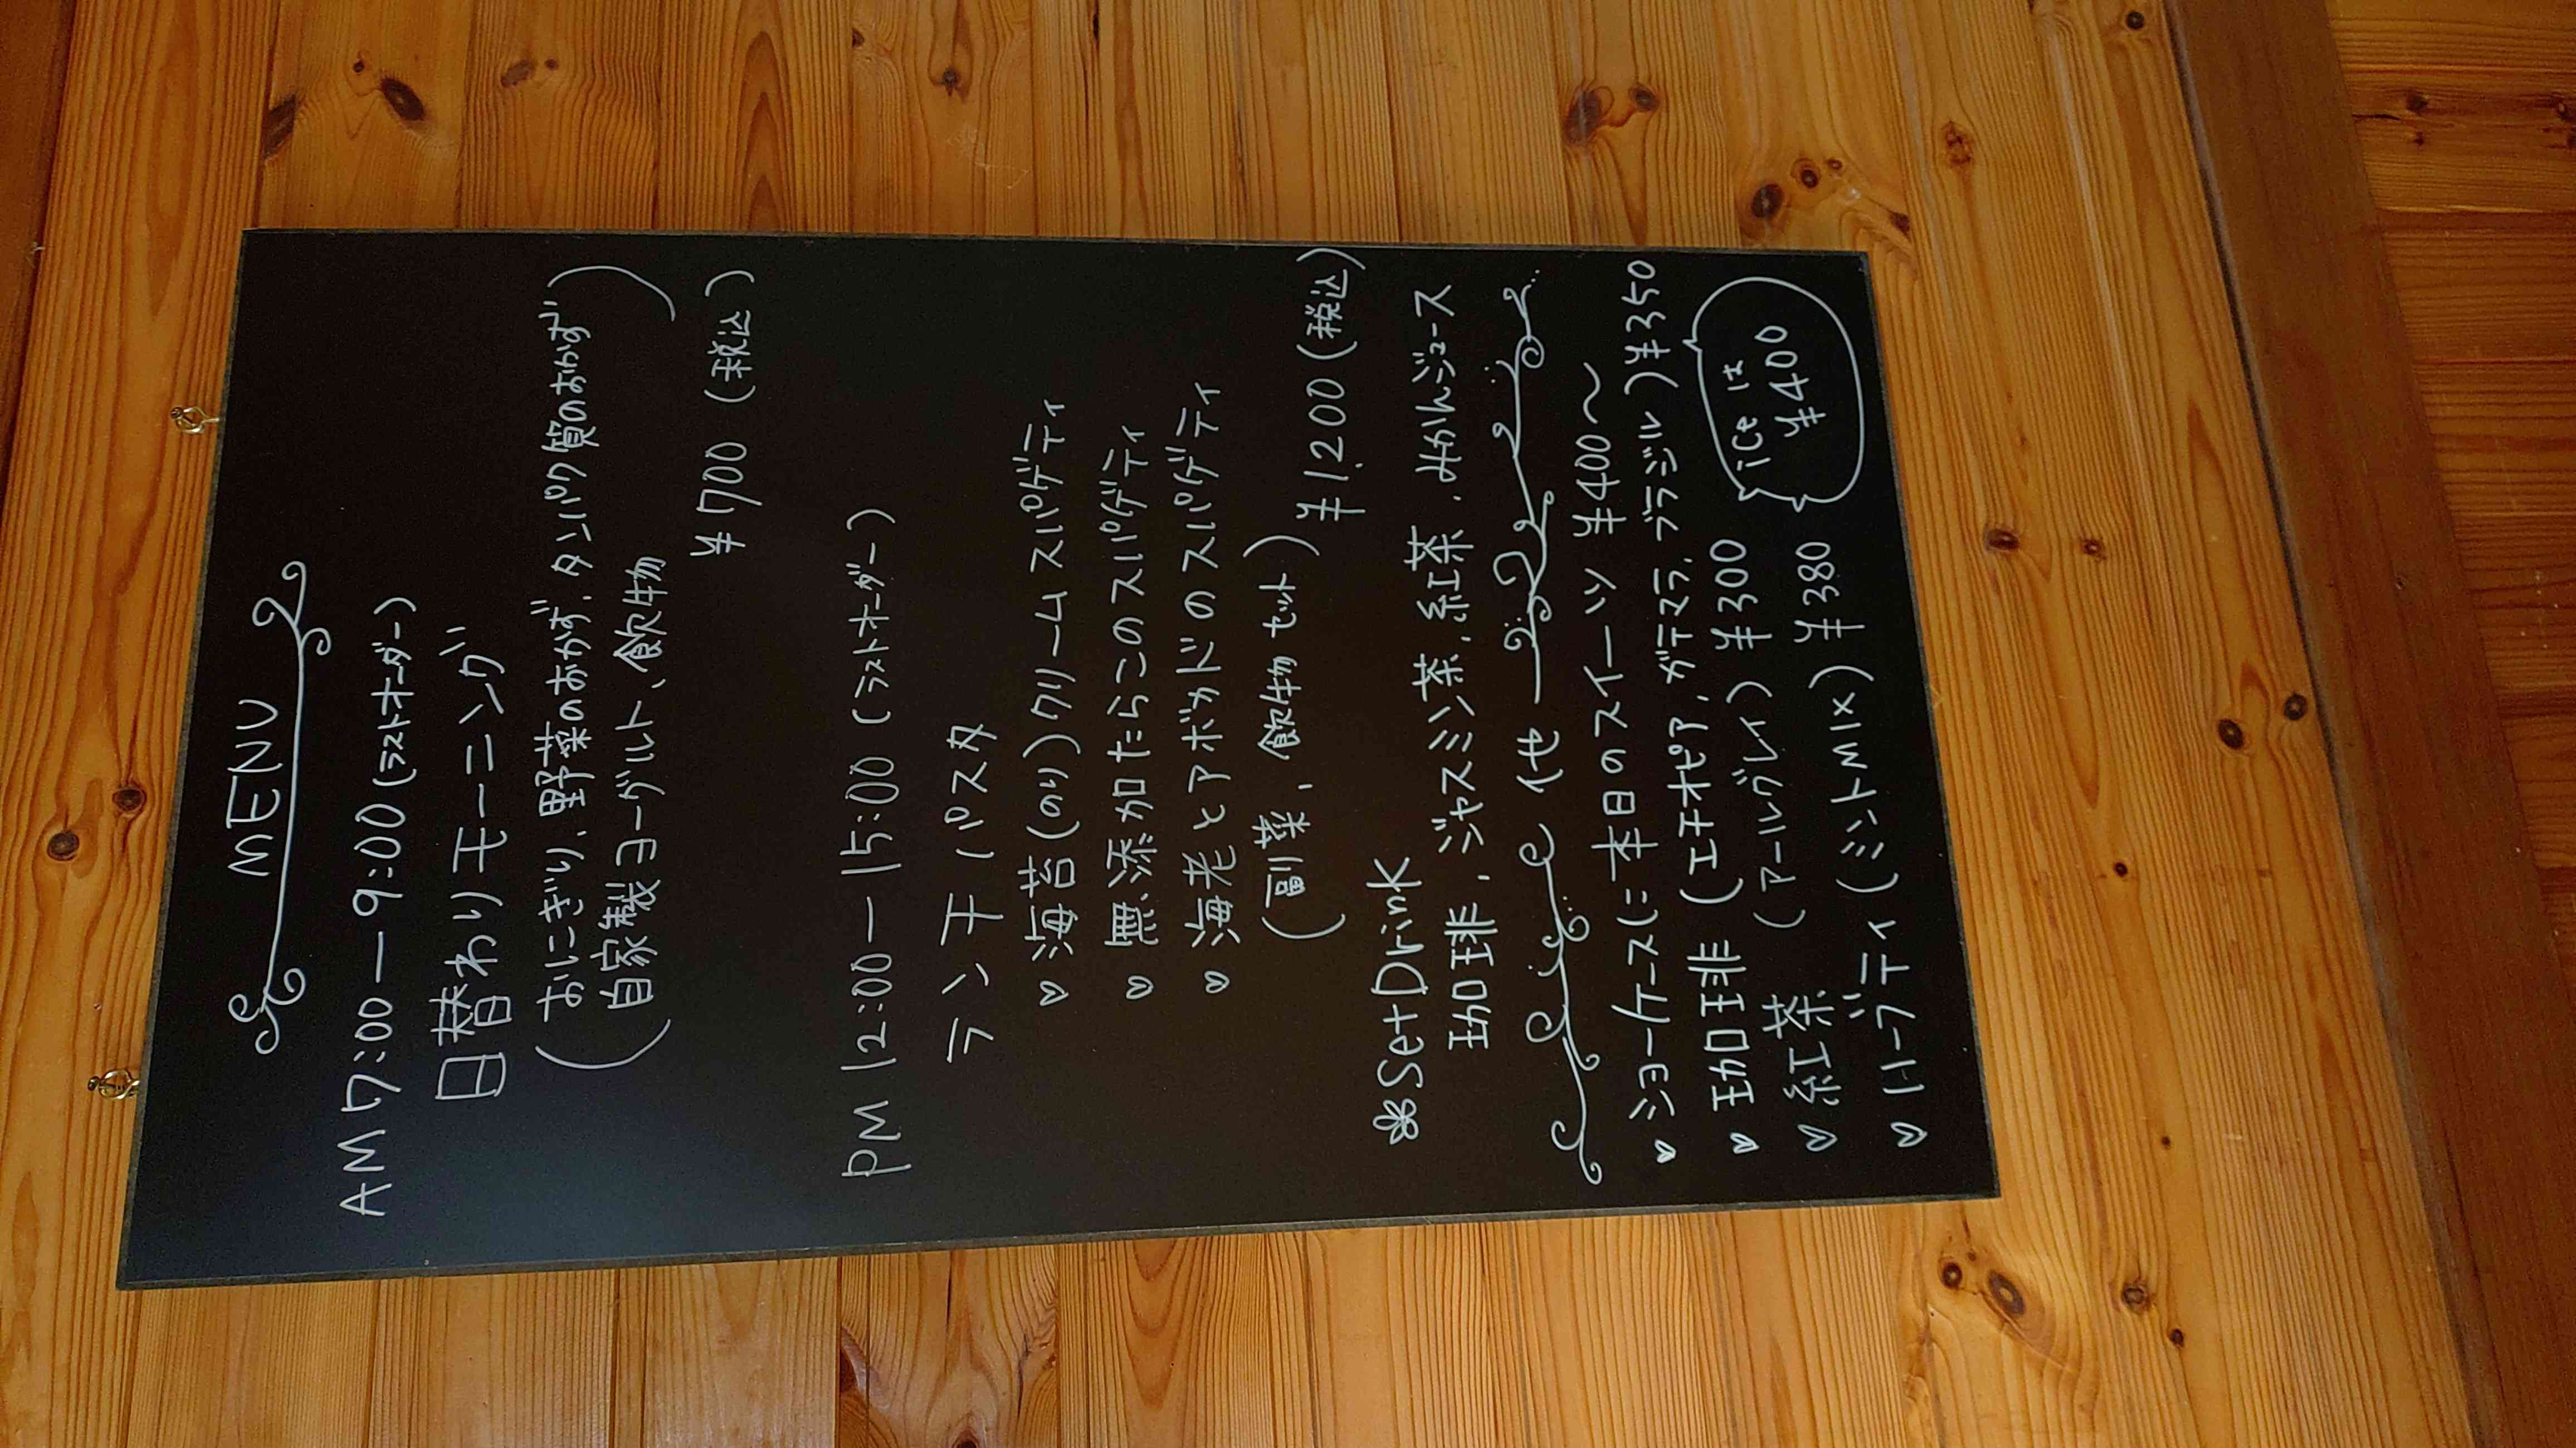 MENU
AM 7:00－9:00(ラストオーダー)
日替わりモーニング
(おにぎり,野菜のおかず,タンパク質のおかず)
(自家製ヨーグルト、飲み物)
¥700(税込)
PM 12:00－15:00(ラストオーダー)
ランチパスタ
海苔(のり)クリームスパゲティ
無添加たらこのスパゲティ
海老とアボカドのスパゲティ
(副菜、飲み物セット)
¥1200(税込)
Set Drink
珈琲,ジャスミン茶,紅茶,みかんジュース
他
ショーケースに本日のスイーツ ¥400～
珈琲(エチオピア,ガテマラ,ブラジル)¥350
紅茶(アールグレイ)¥300
ハーブティ(ミントMIX)¥380
iceは
¥400